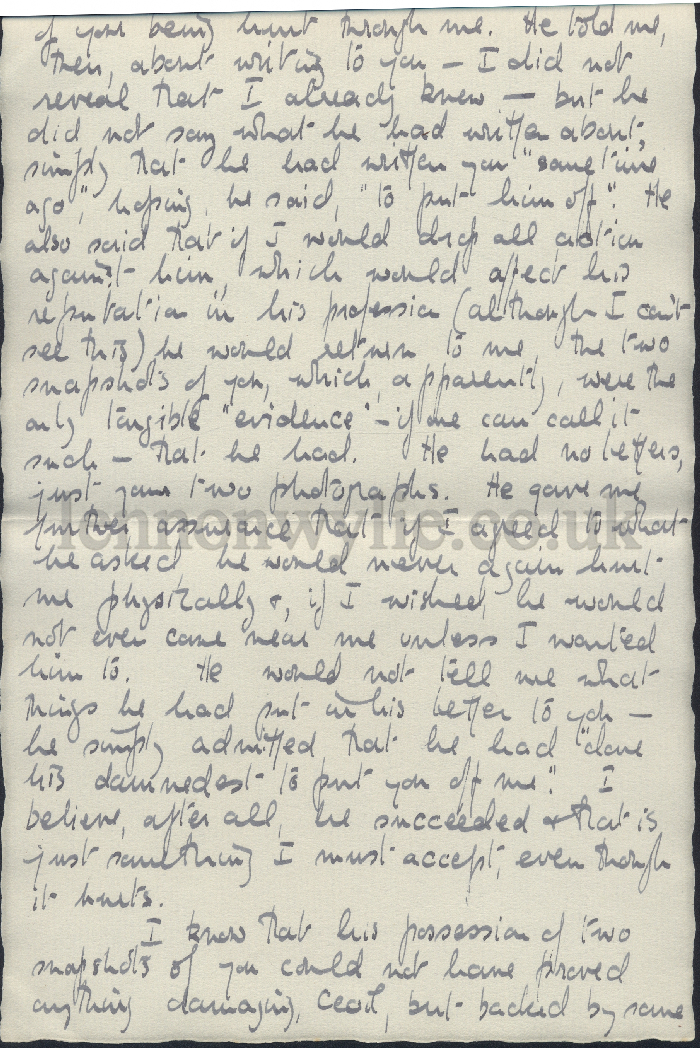 of your being hurt through me. He told me,
then, about writing to you — I did not
reveal that I already knew — but he
did not say what he had written about,
simply that he had written you "sometime
ago", hoping, he said, "to put him off". He
also said that if I would drop all action
against him, which would affect his
reputation in his profession (although I can't
see this) he would return to me, the two
snapshots of you, which, apparently, were the
only tangible "evidence" – if one can call it
such – that he had. He had no letters,
just your two photographs. He gave me
further assurance that if I agreed to what
lennonwylie.co.uk
he asked he would never again hurt
me physically &, if I wished, he would
not even come near me unless I wanted
him to. He would not tell me what
things he had put in his letter to you —
he simply admitted that he had "done
his damnedest to put you off me." I
believe, after all, he succeeded & that is
just something I must accept, even though
it hurts.
I know that his possession of two
snapshots of you could not have proved
anything damaging, Cecil, but backed by some